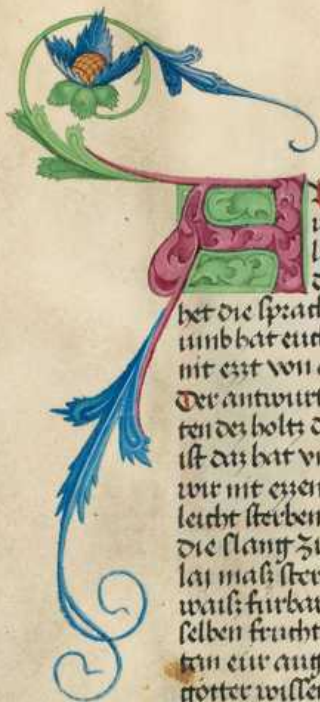 A
het die sprach
umb hat euch
nit ezzt von
Der antwurt
ten dez holtz
ist daz hat
wir nit ezzen
leicht sterben
die slang zu
lai mass ster
waiss furbar
selben frucht
tan eur aug
götter wissen